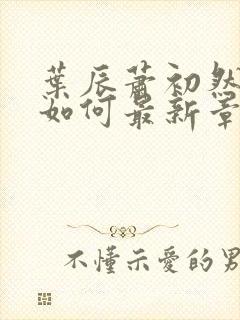 葉辰蕭初然
如何最新章
不懂示愛的男